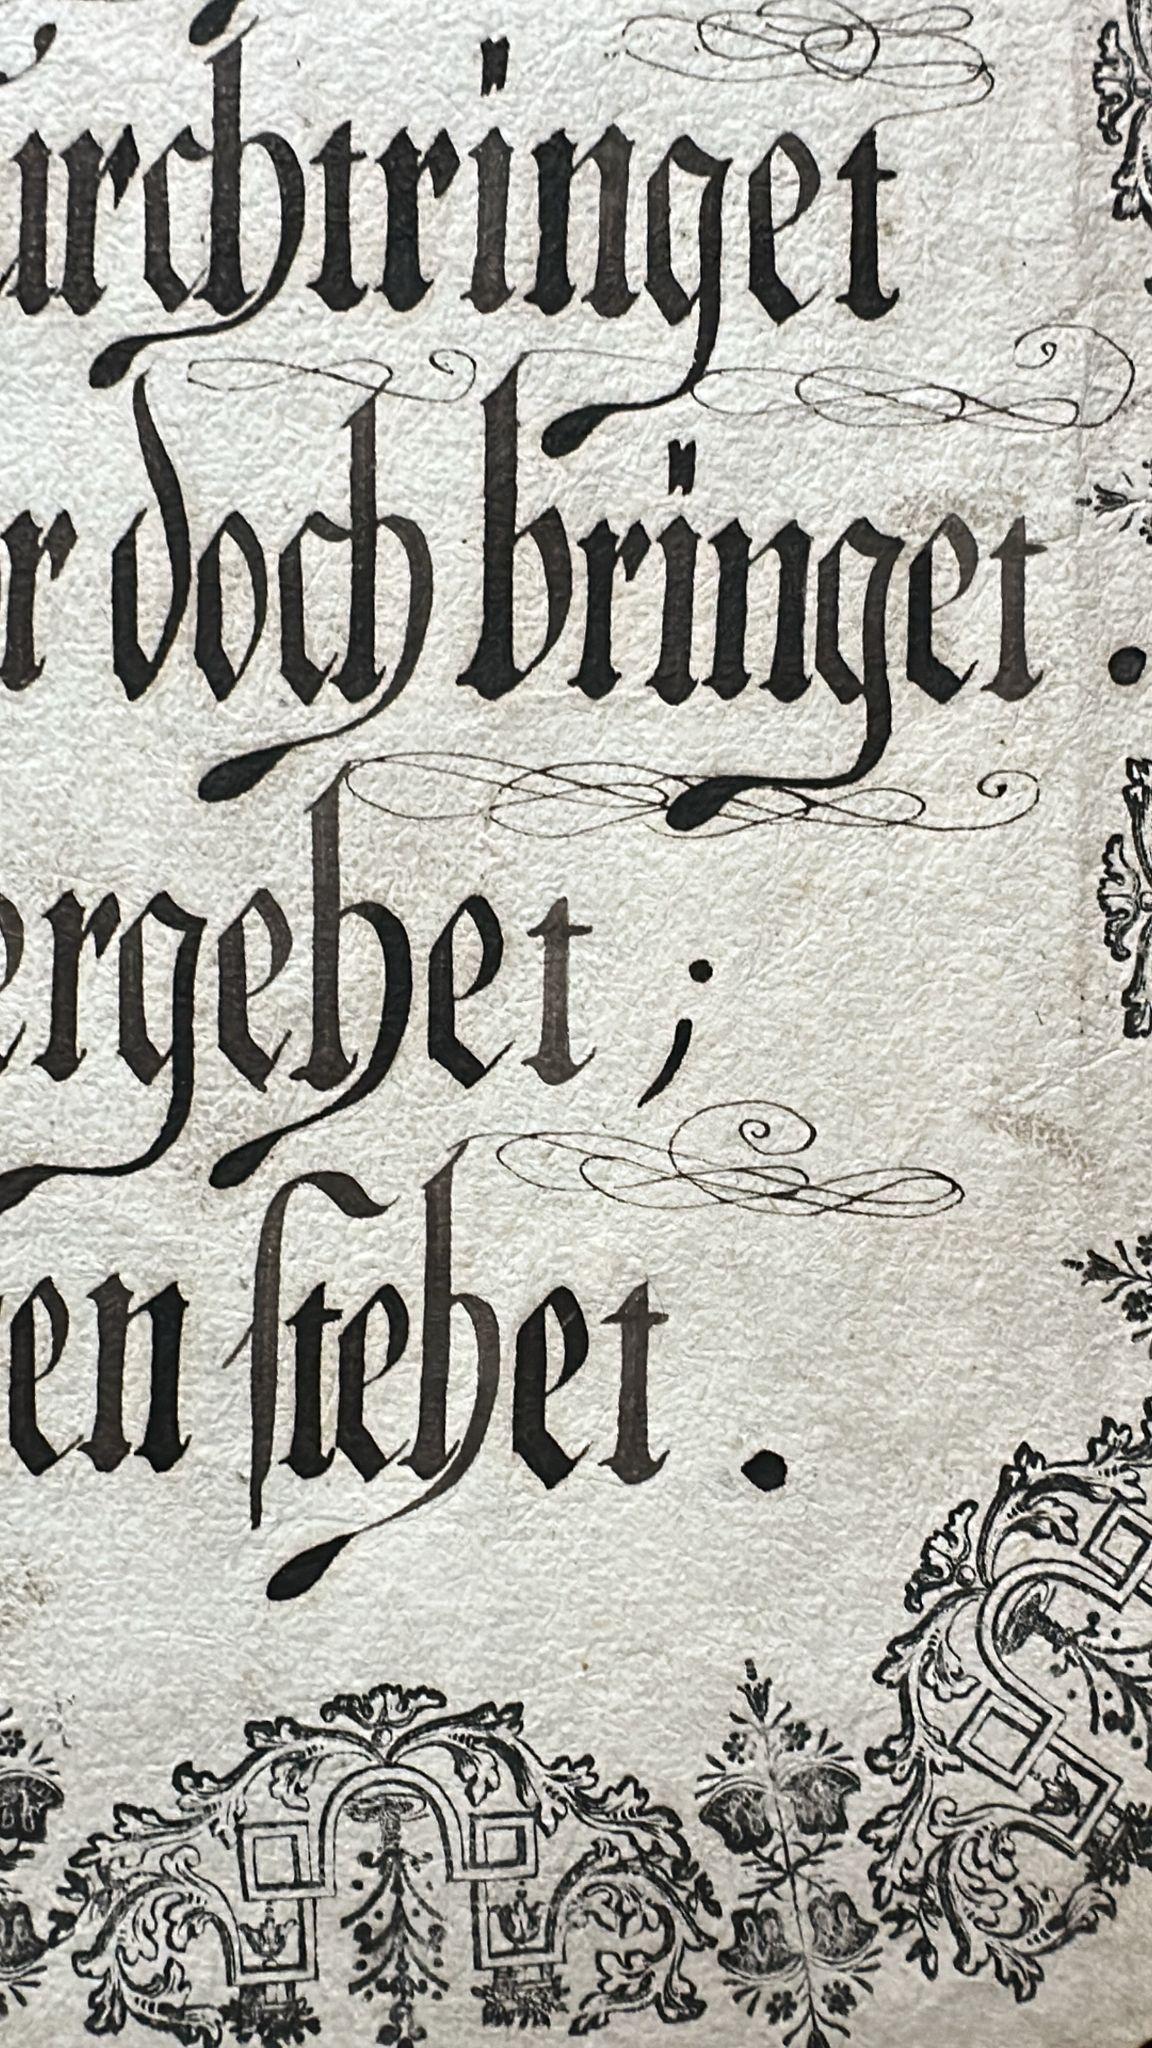 urchtringet
r doch bringet.
ergehet;
en ſtehet.